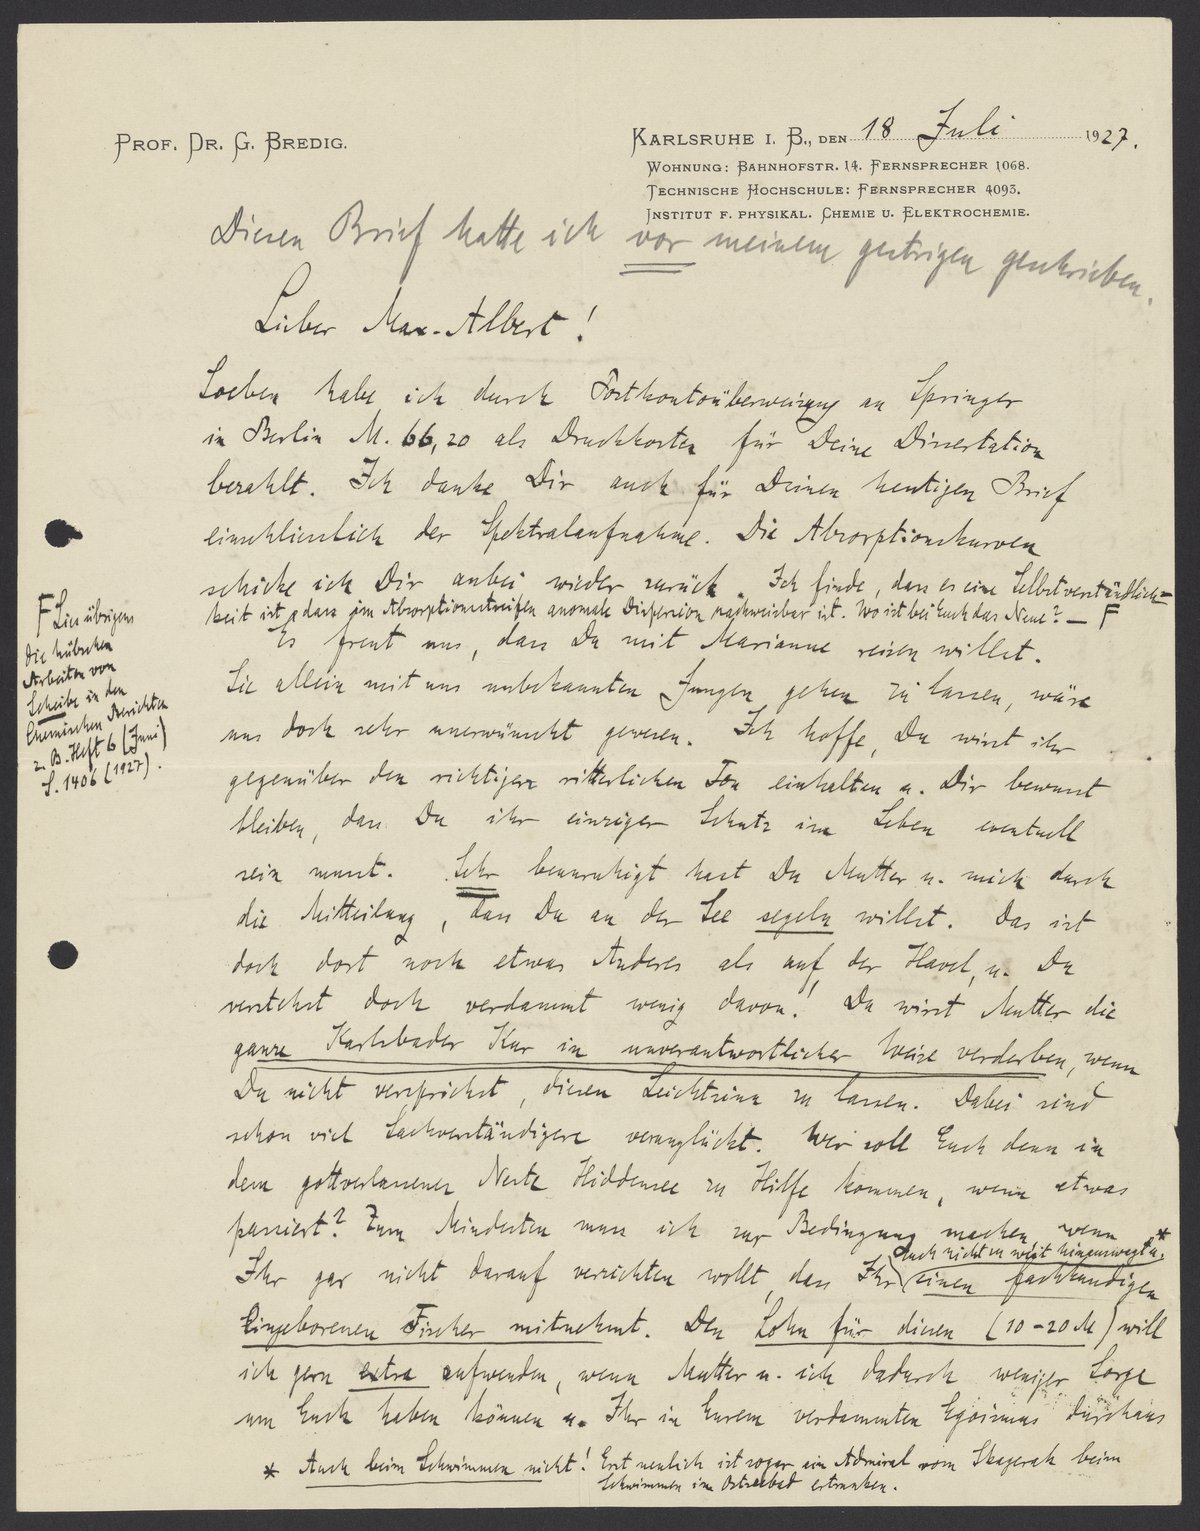 PROF. DR. G. BREDIG.
KARLSRUHE I. B., DEN 18 Juli 1927.
WOHNUNG: BAHNHOFSTR. 14. FERNSPRECHER 1068.
TECHNISCHE HOCHSCHULE: FERNSPRECHER 4093.
INSTITUT F. PHYSIKAL. CHEMIE U. ELEKTROCHEMIE.
Diesen Brief hatte ich vor meinem gestrigen geschrieben.
Lieber Max-Albert!
Soeben habe ich durch Postkontoüberweisung an Springer
in Berlin M. 66,20 als Druckkosten für Deine Dissertation
bezahlt. Ich danke Dir auch für Deinen heutigen Brief
einschliesslich der Spektralaufnahme. Die Absorptionskurven
schicke ich Dir anbei wieder zurück. Ich finde, dass es eine Selbstverständlich-
keit ist, dass im Absorptionsstreifen anomale Dispersion nachweisbar ist. Wo ist bei Euch das Neue? — F
F Lies übrigens
die hübschen
Arbeiten von
Scheibe in den
Chemischen Berichten
z. B. Heft 6 (Juni)
S. 1406 (1927).
Es freut uns, dass Du mit Marianne reisen willst.
Sie allein mit uns unbekannten Jungen gehen zu lassen, wäre
uns doch sehr unerwünscht gewesen. Ich hoffe, Du wirst ihr
gegenüber den richtigen ritterlichen Ton einhalten u. Dir bewusst
bleiben, dass Du ihr einziger Schutz im Leben eventuell
sein musst. Sehr beunruhigt hast Du Mutter u. mich durch
die Mitteilung, dass Du an der See segeln willst. Das ist
doch dort noch etwas Anderes als auf der Havel, u. Du
verstehst doch verdammt wenig davon! Du wirst Mutter die
ganze Karlsbader Kur in unverantwortlicher Weise verderben, wenn
Du nicht versprichst, diesen Leichtsinn zu lassen. Dabei sind
schon viel Sachverständigere verunglückt. Wer soll Euch denn in
dem gottverlassenen Neste Hiddensee zu Hilfe kommen, wenn etwas
passiert? Zum Mindesten muss ich zur Bedingung machen, wenn
Ihr gar nicht darauf verzichten wollt, dass Ihr (Euch nicht zu weit hinauswagt u.*
einen fachkundigen
Eingeborenen Fischer mitnehmt. Den Lohn für diesen (10-20 M) will
ich gern extra aufwenden, wenn Mutter u. ich dadurch weniger Sorge
um Euch haben können u. Ihr in Eurem verdammten Egoismus durchaus
* Auch beim Schwimmen nicht! Erst neulich ist sogar ein Admiral vom Skagerak beim
Schwimmen im Ostseebad ertrunken.